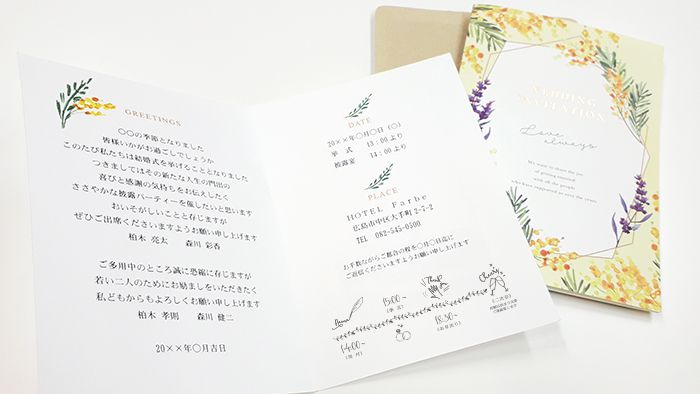 GREETINGS
〇〇の季節となりました
皆様いかがお過ごしでしょうか
このたび私たちは結婚式を挙げることとなりました
つきましてはその新たな人生の門出の
喜びと感謝の気持ちをお伝えしたく
ささやかな披露パーティーを催したいと思います
おいそがしいことと存じますが
ぜひご出席くださいますようお願い申し上げます
柏木 亮太 森川 彩香
ご多用中のところ誠に恐縮に存じますが
若い二人のためにお励ましをいただきたく
私どもからもよろしくお願い申し上げます
柏木 孝則 森川 健二
20××年〇月吉日
DATE
20××年〇月〇日(〇)
挙 式 13:00より
披露宴 14:00より
PLACE
HOTEL Farbe
広島市中区大手町2-7-2
TEL 082-545-0500
お手数ながらご都合の程を〇月〇日迄に
ご返信くださいますようお願い申し上げます
14:00~
15:00~
18:30~
WEDDING
INVITATION
Love
always
We want to share the joy
of getting married
with all the people
who have supported us over the years